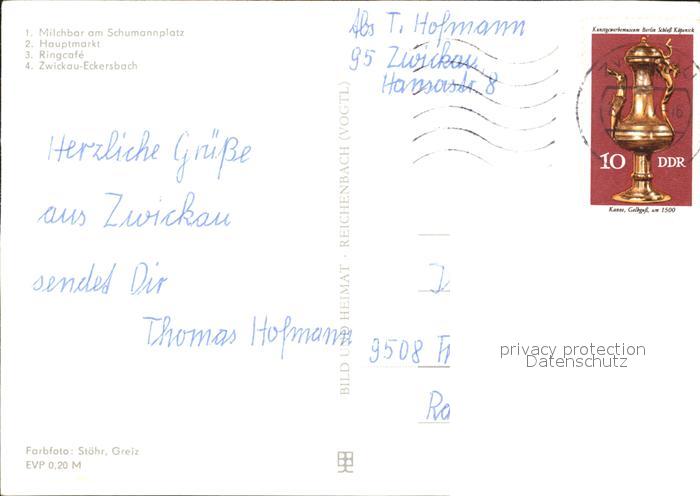 1. Milchbar am Schumannplatz
2. Hauptmarkt
3. Ringcafé
4. Zwickau-Eckersbach
Abs T. Hofmann
95 Zwickau
Hansastr. 8
Kunstgewerbemuseum Berlin Schloß Köpenick
10 DDR
Kanne, Gelbguß, um 1500
Herzliche Grüße
aus Zwickau
sendet Dir
Thomas Hofmann
BILD UND HEIMAT · REICHENBACH (VOGTL)
9508
privacy protection
Datenschutz
Farbfoto: Stöhr, Greiz
EVP 0,20 M